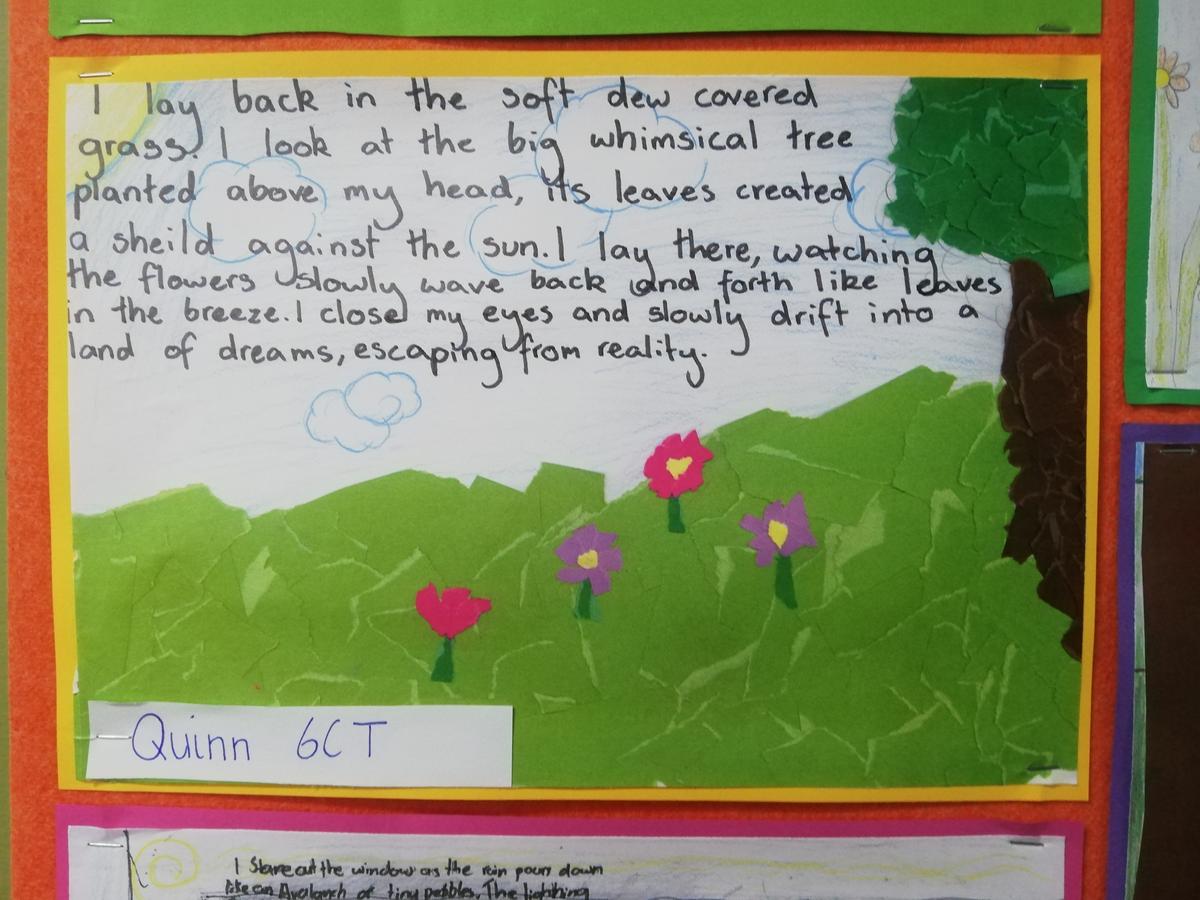 I lay back in the soft dew covered
grass. I look at the big whimsical tree
planted above my head, its leaves created
a sheild against the sun. I lay there, watching
the flowers slowly wave back and forth like leaves
in the breeze. I close my eyes and slowly drift into a
land of dreams, escaping from reality.
Quinn 6CT
I Stare out the window as the rain pours down
like an Avalanch of tiny pebbles. The lighthing